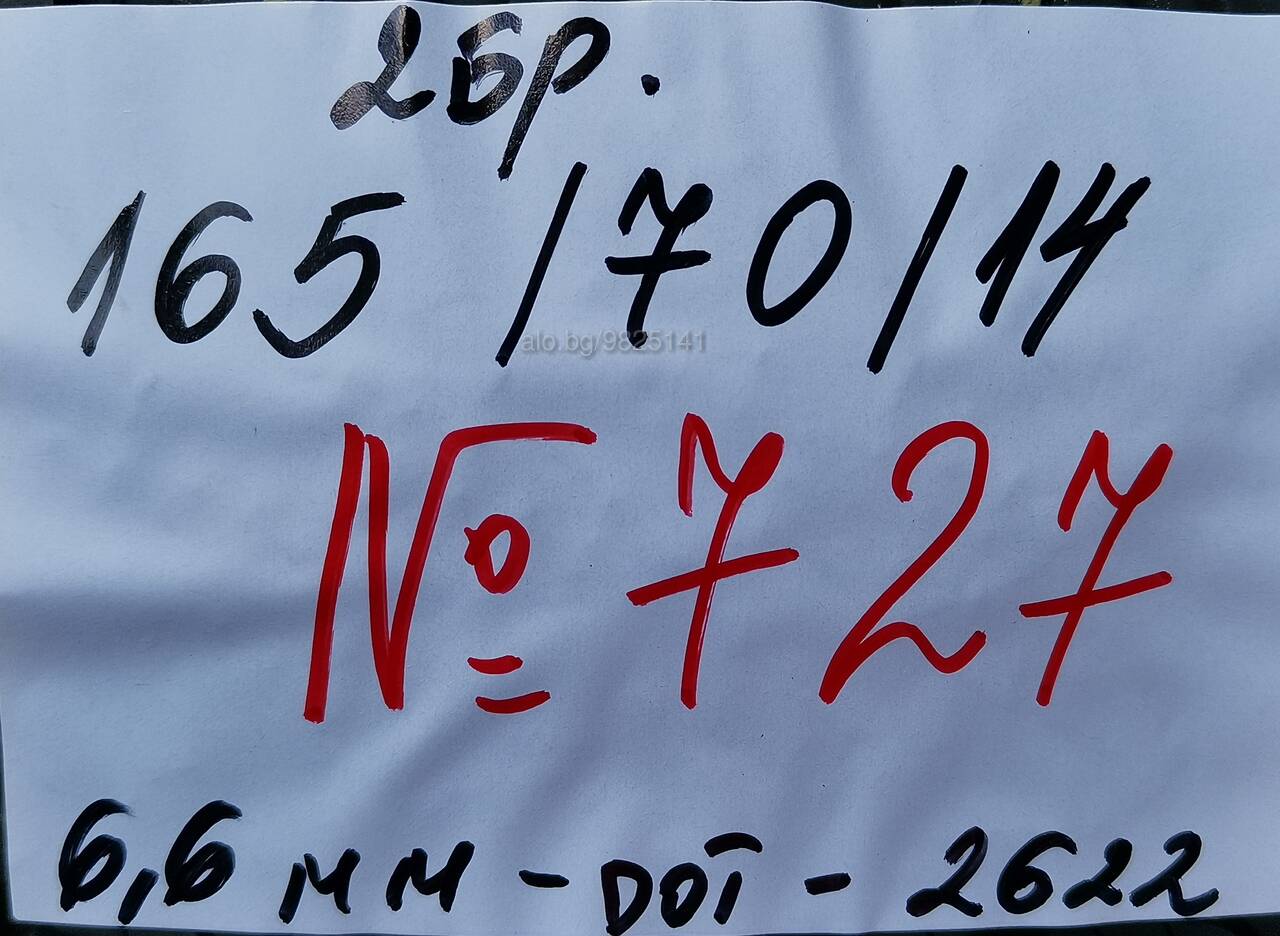 2бр.
165/70/14
alo.bg/9825141
№ 727
6,6 мм - DOT - 2622